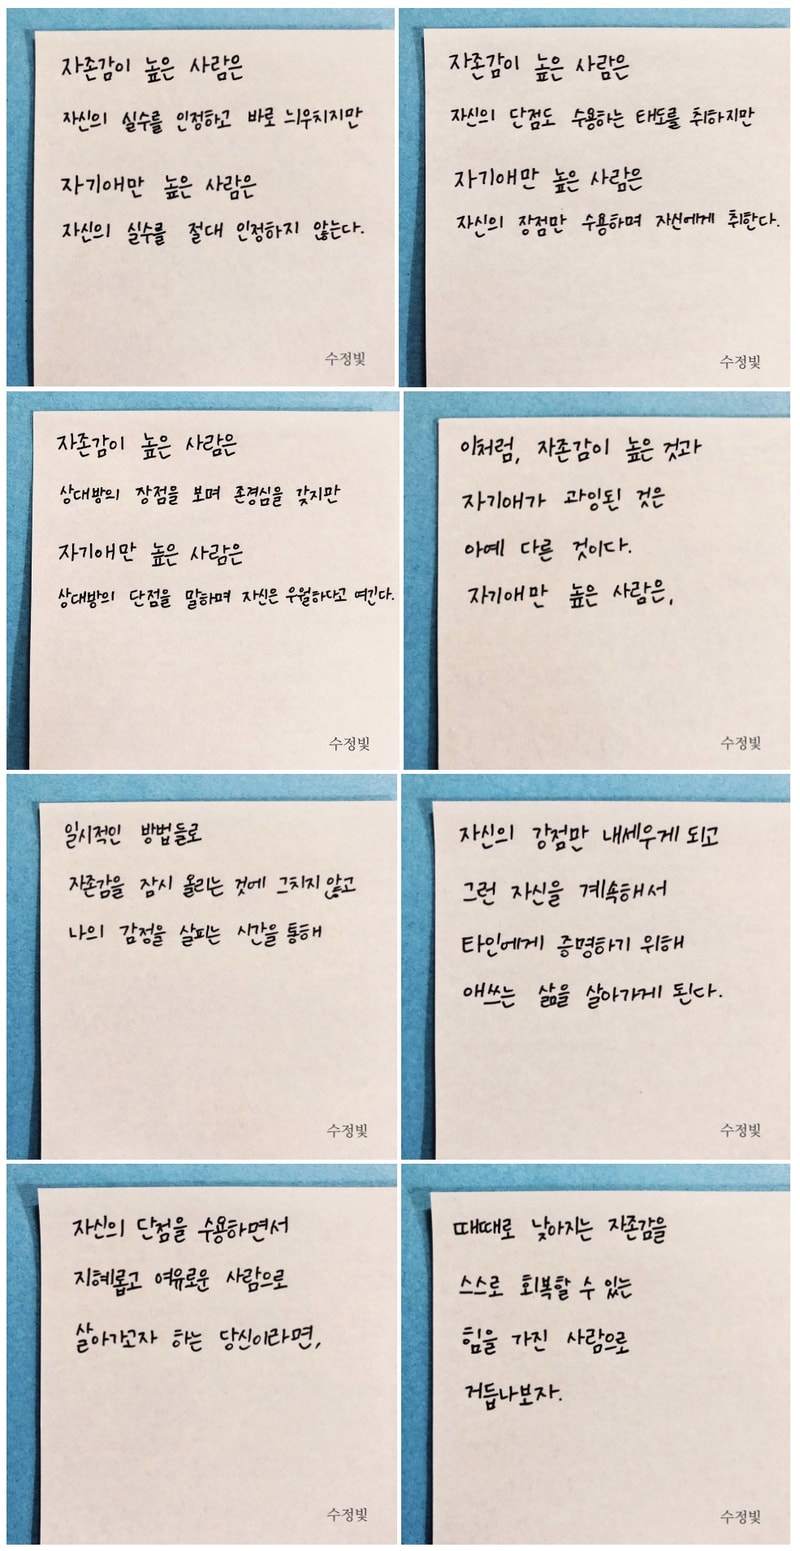 자존감이 높은 사람은
자신의 실수를 인정하고 바로 늬우치지만
자기애만 높은 사람은
자신의 실수를 절대 인정하지 않는다.
수정빛
자존감이 높은 사람은
자신의 단점도 수용하는 태도를 취하지만
자기애만 높은 사람은
자신의 장점만 수용하며 자신에게 취한다.
수정빛
자존감이 높은 사람은
상대방의 장점을 보며 존경심을 갖지만
자기애만 높은 사람은
상대방의 단점을 말하며 자신은 우월하다고 여긴다.
수정빛
이처럼, 자존감이 높은 것과
자기애가 과잉된 것은
아예 다른 것이다.
자기애만 높은 사람은,
수정빛
일시적인 방법들로
자존감을 잠시 올리는 것에 그치지 않고
나의 감정을 살피는 시간을 통해
수정빛
자신의 강점만 내세우게 되고
그런 자신을 계속해서
타인에게 증명하기 위해
애쓰는 삶을 살아가게 된다.
수정빛
자신의 단점을 수용하면서
지혜롭고 여유로운 사람으로
살아가고자 하는 당신이라면,
수정빛
때때로 낮아지는 자존감을
스스로 회복할 수 있는
힘을 가진 사람으로
거듭나보자.
수정빛